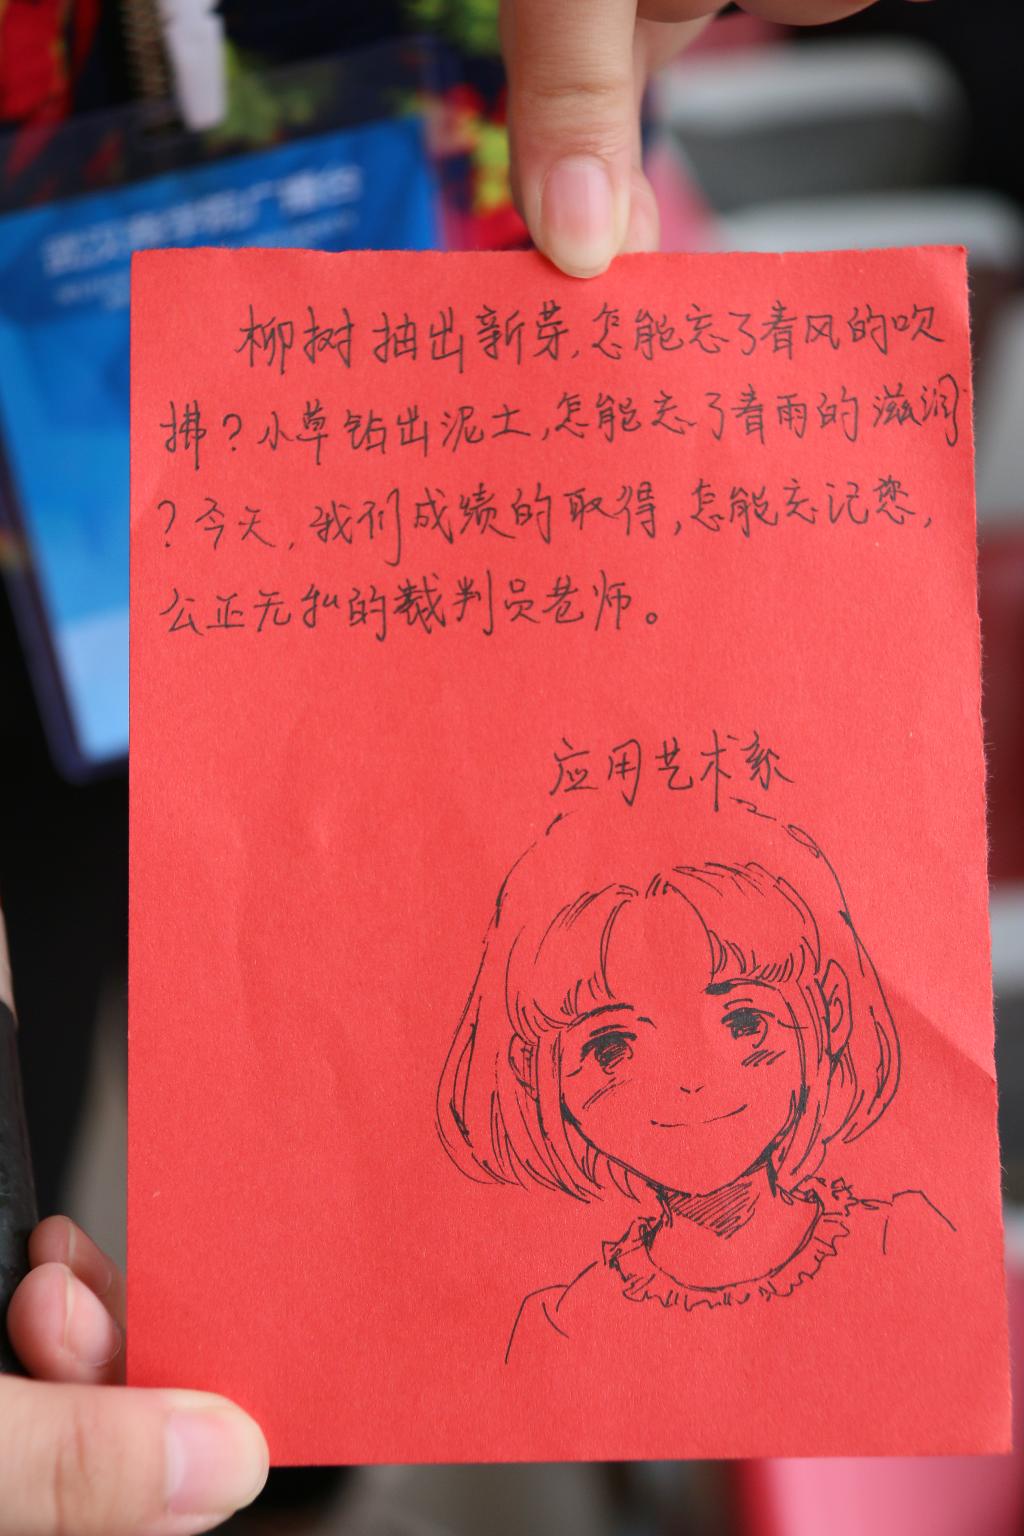 柳树抽出新芽,怎能忘了春风的吹
拂?小草钻出泥土,怎能忘了春雨的滋润
?今天,我们成绩的取得,怎能忘记您,
公正无私的裁判员老师。
应用艺术系